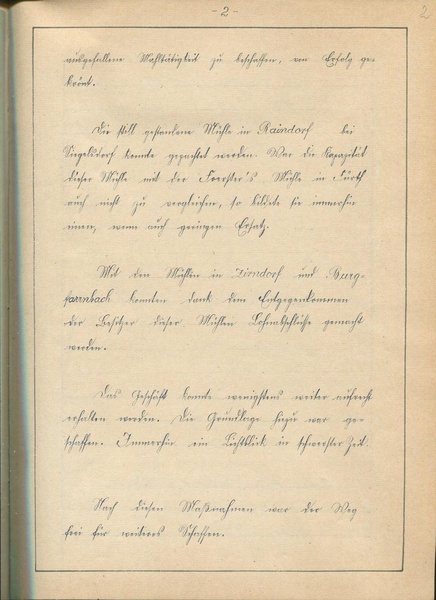 - 2 -
2
ausgefallene Mahltätigkeit zu beschaffen, von Erfolg ge-
krönt.
Die still gestandene Mühle in Raindorf bei
Siegelsdorf konnte gepachtet werden. War die Kapazität
dieser Mühle mit der Foerster's Mühle in Fürth
auch nicht zu vergleichen, so bildete sie immerhin
einen, wenn auch geringen Ersatz.
Mit den Mühlen in Zirndorf und Burg-
farrnbach konnten dank dem Entgegenkommen
der Besitzer dieser Mühlen Lohnabschlüße gemacht
werden.
Das Geschäft konnte wenigstens weiter aufrecht
erhalten werden. Die Grundlage hiezu war ge-
schaffen. Immerhin ein Lichtblick in schwerster Zeit.
Nach diesen Maßnahmen war der Weg
frei für weiteres Schaffen.